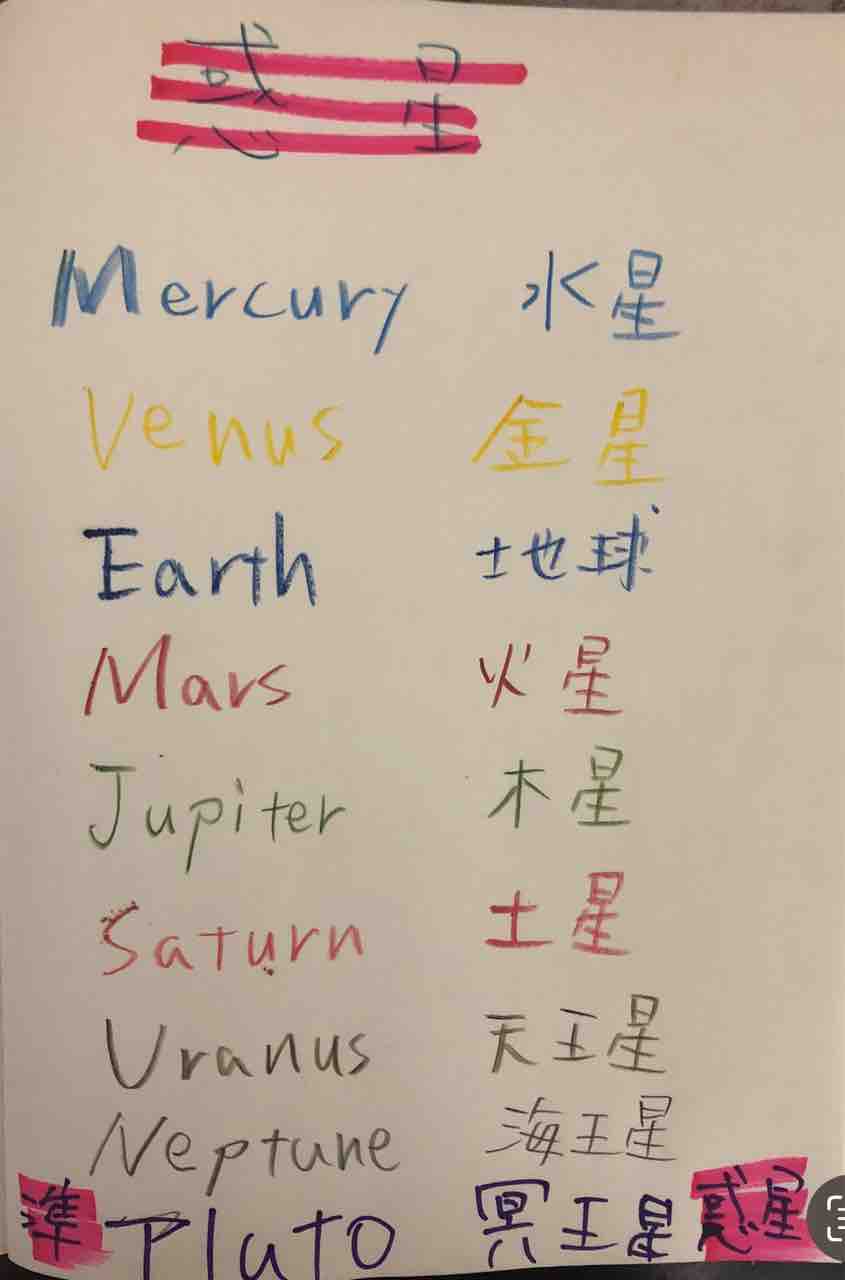 惑星
Mercury 水星
Venus 金星
Earth 地球
Mars 火星
Jupiter 木星
Saturn 土星
Uranus 天王星
Neptune 海王星
準 Pluto 冥王星 惑星